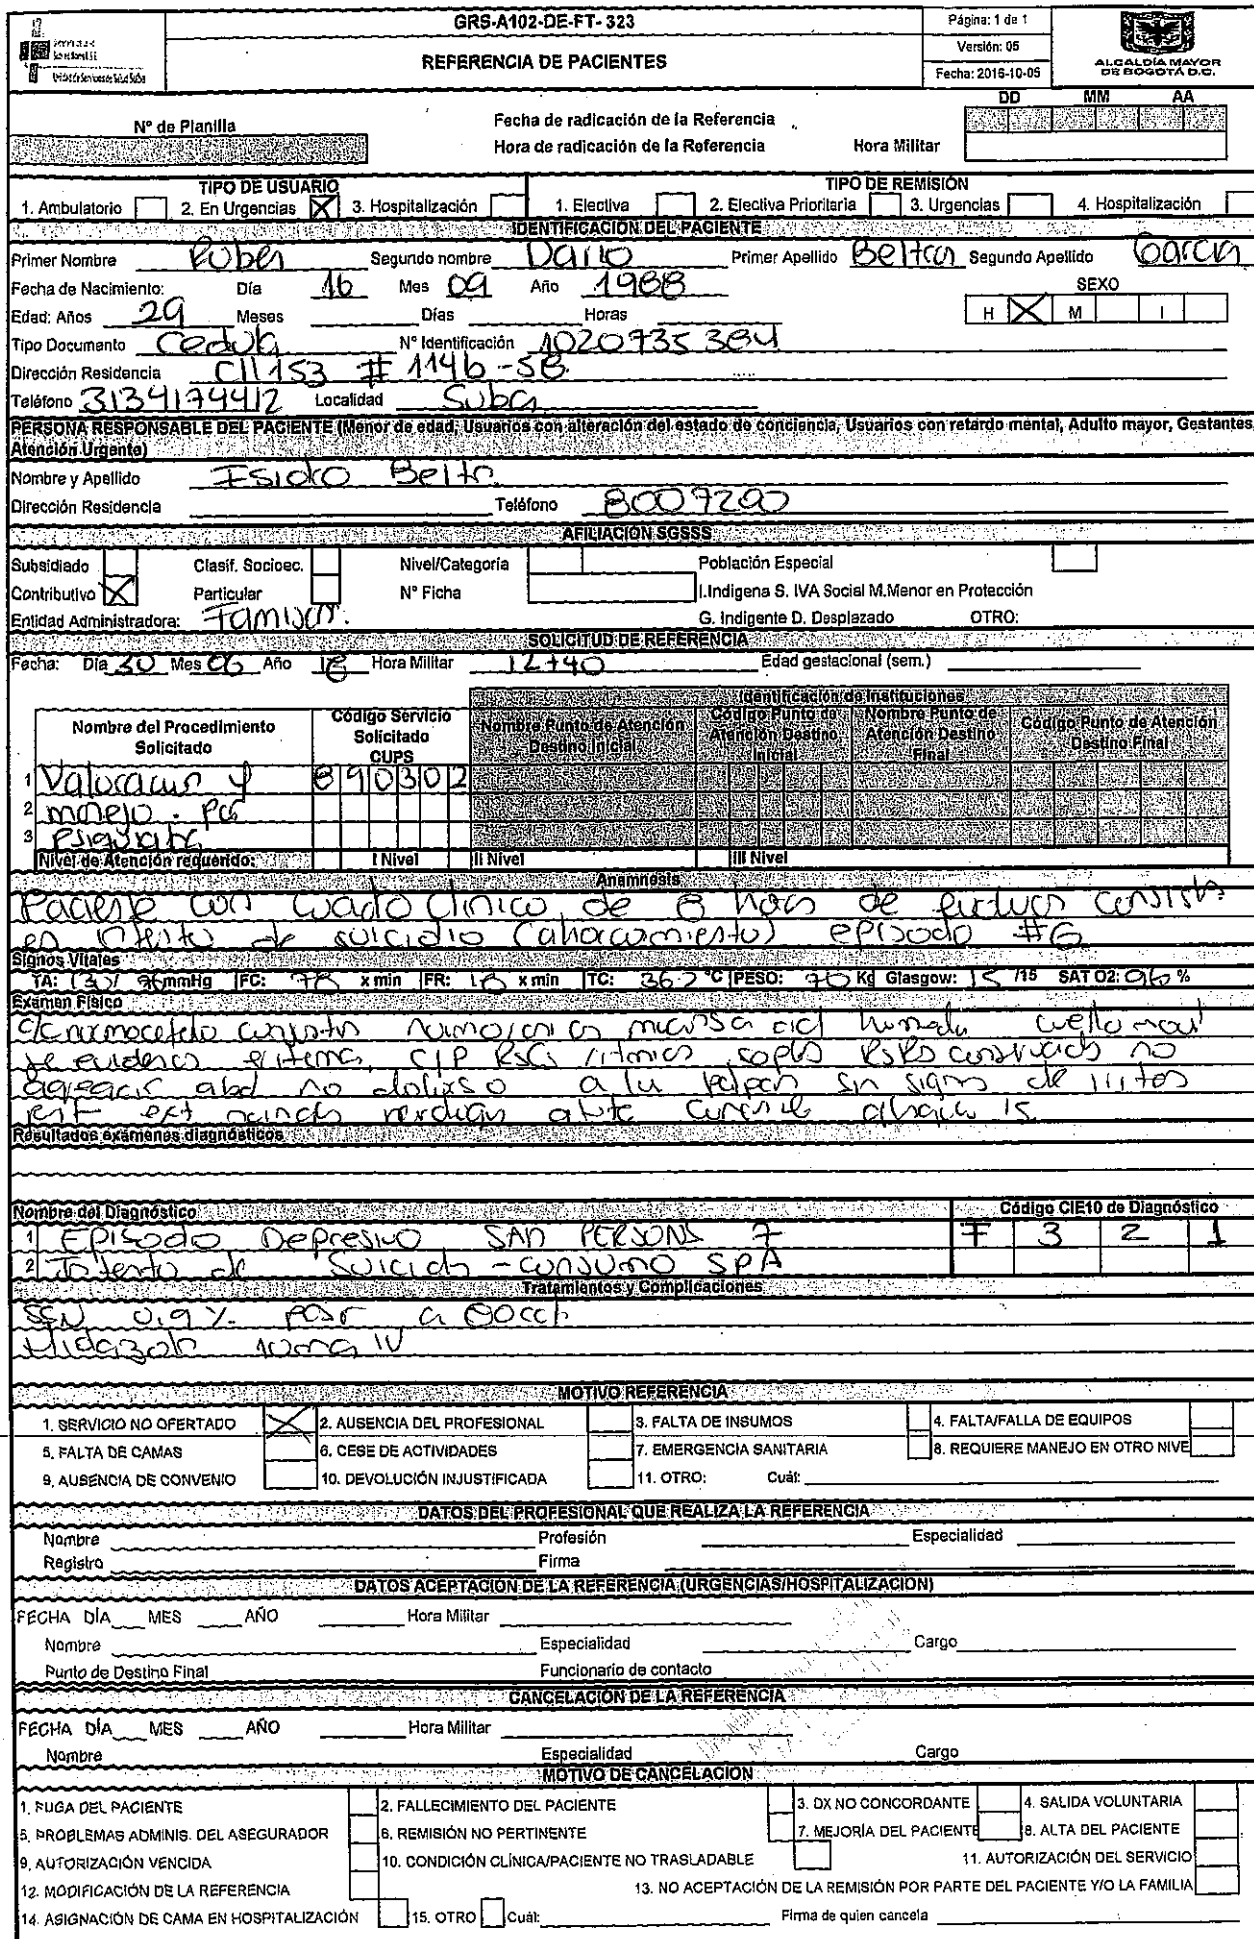 GRS-A102-DE-FT-323
Página: 1 de 1
REFERENCIA DE PACIENTES
Versión: 05
Fecha: 2016-10-05
ALCALDÍA MAYOR
DE BOGOTÁ D.C.
DD MM AA
Nº de Planilla
Fecha de radicación de la Referencia
Hora de radicación de la Referencia Hora Militar
TIPO DE USUARIO TIPO DE REMISIÓN
1. Ambulatorio 2. En Urgencias X 3. Hospitalización 1. Electiva 2. Electiva Prioritaria 3. Urgencias 4. Hospitalización
IDENTIFICACIÓN DEL PACIENTE
Primer Nombre Ruben Segundo nombre Dario Primer Apellido Beltran Segundo Apellido Garcia
Fecha de Nacimiento: Día 16 Mes 09 Año 1988 SEXO
Edad: Años 29 Meses Días Horas H X M I
Tipo Documento Cedula Nº Identificación 1020735384
Dirección Residencia Cll 153 # 114b-58
Teléfono 3134174412 Localidad Suba
PERSONA RESPONSABLE DEL PACIENTE (Menor de edad, Usuarios con alteración del estado de conciencia, Usuarios con retardo mental, Adulto mayor, Gestantes,
Atención Urgente)
Nombre y Apellido Isidro Beltr
Dirección Residencia Teléfono 8007290
AFILIACIÓN SGSSS
Subsidiado Clasif. Socioec. Nivel/Categoría Población Especial
Contributivo X Particular Nº Ficha I.Indigena S. IVA Social M.Menor en Protección
Entidad Administradora: Famisan. G. Indigente D. Desplazado OTRO:
SOLICITUD DE REFERENCIA
Fecha: Día 30 Mes 06 Año 18 Hora Militar 12+40 Edad gestacional (sem.)
Identificación de Instituciones
Nombre del Procedimiento Solicitado Código Servicio Solicitado CUPS Nombre Punto de Atención Destino Inicial Código Punto de Atención Destino Inicial Nombre Punto de Atención Destino Final Código Punto de Atención Destino Final
1 Valoracion y 890302
2 manejo. por
3 Psiquiatria
Nivel de Atención requerido: I Nivel II Nivel III Nivel
Anamnesis
Paciente con cuadro clinico de 8 horas de evolucion consist.
en intento de suicidio (ahorcamiento) episodio #6
Signos Vitales
TA: 130/ mmHg FC: 78 x min FR: 18 x min TC: 36.2 °C PESO: 70 Kg Glasgow: 15 /15 SAT O2: 96 %
Examen Físico
C/C normocefalo mucosa oral humeda cuello movil
se evidencia eritema, C/P RsCs ritmicos soplos RsRs conservados no
agregados abd no doloroso a la palpacion sin signos de irritacion
ext
Resultados exámenes diagnósticos
Nombre del Diagnóstico Código CIE10 de Diagnóstico
1 Episodio Depresivo SAD PERSONS 7 F 3 2 1
2 Intento de Suicidio - consumo SPA
Tratamientos y Complicaciones
SSN 0.9% pasar a 80cch
Midazolam 10mg IV
MOTIVO REFERENCIA
1. SERVICIO NO OFERTADO X 2. AUSENCIA DEL PROFESIONAL 3. FALTA DE INSUMOS 4. FALTA/FALLA DE EQUIPOS
5. FALTA DE CAMAS 6. CESE DE ACTIVIDADES 7. EMERGENCIA SANITARIA 8. REQUIERE MANEJO EN OTRO NIVE
9. AUSENCIA DE CONVENIO 10. DEVOLUCIÓN INJUSTIFICADA 11. OTRO: Cuál:
DATOS DEL PROFESIONAL QUE REALIZA LA REFERENCIA
Nombre Profesión Especialidad
Registro Firma
DATOS ACEPTACIÓN DE LA REFERENCIA (URGENCIAS/HOSPITALIZACIÓN)
FECHA DÍA MES AÑO Hora Militar
Nombre Especialidad Cargo
Punto de Destino Final Funcionario de contacto
CANCELACIÓN DE LA REFERENCIA
FECHA DÍA MES AÑO Hora Militar
Nombre Especialidad Cargo
MOTIVO DE CANCELACIÓN
1. FUGA DEL PACIENTE 2. FALLECIMIENTO DEL PACIENTE 3. DX NO CONCORDANTE 4. SALIDA VOLUNTARIA
5. PROBLEMAS ADMINIS. DEL ASEGURADOR 6. REMISIÓN NO PERTINENTE 7. MEJORÍA DEL PACIENTE 8. ALTA DEL PACIENTE
9. AUTORIZACIÓN VENCIDA 10. CONDICIÓN CLÍNICA/PACIENTE NO TRASLADABLE 11. AUTORIZACIÓN DEL SERVICIO
12. MODIFICACIÓN DE LA REFERENCIA 13. NO ACEPTACIÓN DE LA REMISIÓN POR PARTE DEL PACIENTE Y/O LA FAMILIA
14. ASIGNACIÓN DE CAMA EN HOSPITALIZACIÓN 15. OTRO Cuál: Firma de quien cancela